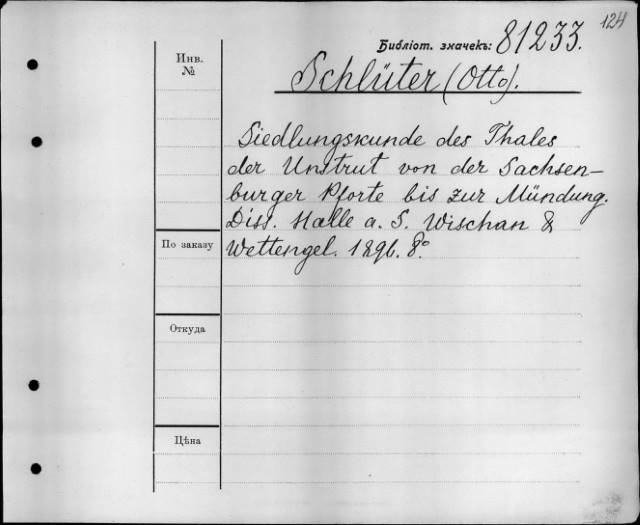 124
Библіот. значекъ: 81233.
Инв.
№
Schlüter (Otto).
Siedlungskunde des Thales
der Unstrut von der Sachsen-
burger Pforte bis zur Mündung.
Diss. Halle a. S. Wischan &
Wettengel. 1896. 8°.
По заказу
Откуда
Цѣна